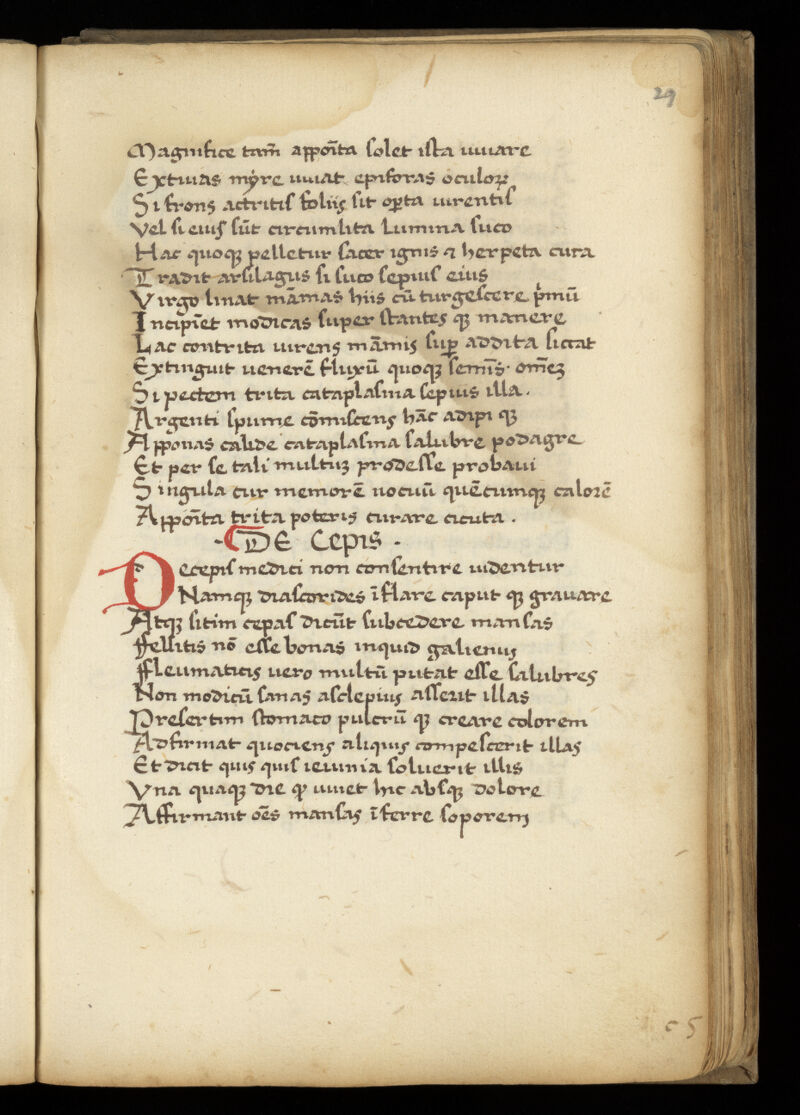 29
Magnifice tam̄ appoīta solet ista iuuare
Extiuas mẏre iuuat epiforas oculoꝝ
Si frons actritis foliis sit oꝑta uirentis
Vel si eius sūt circumlita Lumina suco
Hac quoqꝫ pelletur sacer ignis ⁊ herpeta cura
Tradit arsilagus si suco sepius eius
Virgo linat māmas hiis cū turgescere pͥmū
Incipiēt modicas super stantes qꝫ manere
Lac contrita uirens māmis suꝑ addita siccat
Extinguit uenerē fluxū quoqꝫ semīs· omēꝫ
Si pectem trita cataplasma sepius illa.
Argenti spume cōmiscens hāc adipi qꝫ
Apponas calide cataplasma salubre podagre
Et per se tali multuꝫ prodesse probaui
Singula cur memorē nocuū quēcumqꝫ calorē
Appoīta trita poteris curare cicuta.
De Cepis.
Decepis medici non consentire uidentur
Namqꝫ diascorides īflare caput qꝫ grauare
Atqꝫ sitim cepas dicūt subcedere mansas
Ffellitis nō esse bonas inquid galienus
Ffleumaticis uero multū putat esse salubres
Non modicū sanas asclepius asserit illas
Presertim stomaco pulcrū qꝫ creare colorem
Adfirmat quociens aliquis compescerit illas
Et dicit quis quis ieiunia soluerit illis
Vna quaqꝫ die ꝙ uiuet hic absqꝫ dolore
Affirmant oēs mansas īferre soporem
c 5